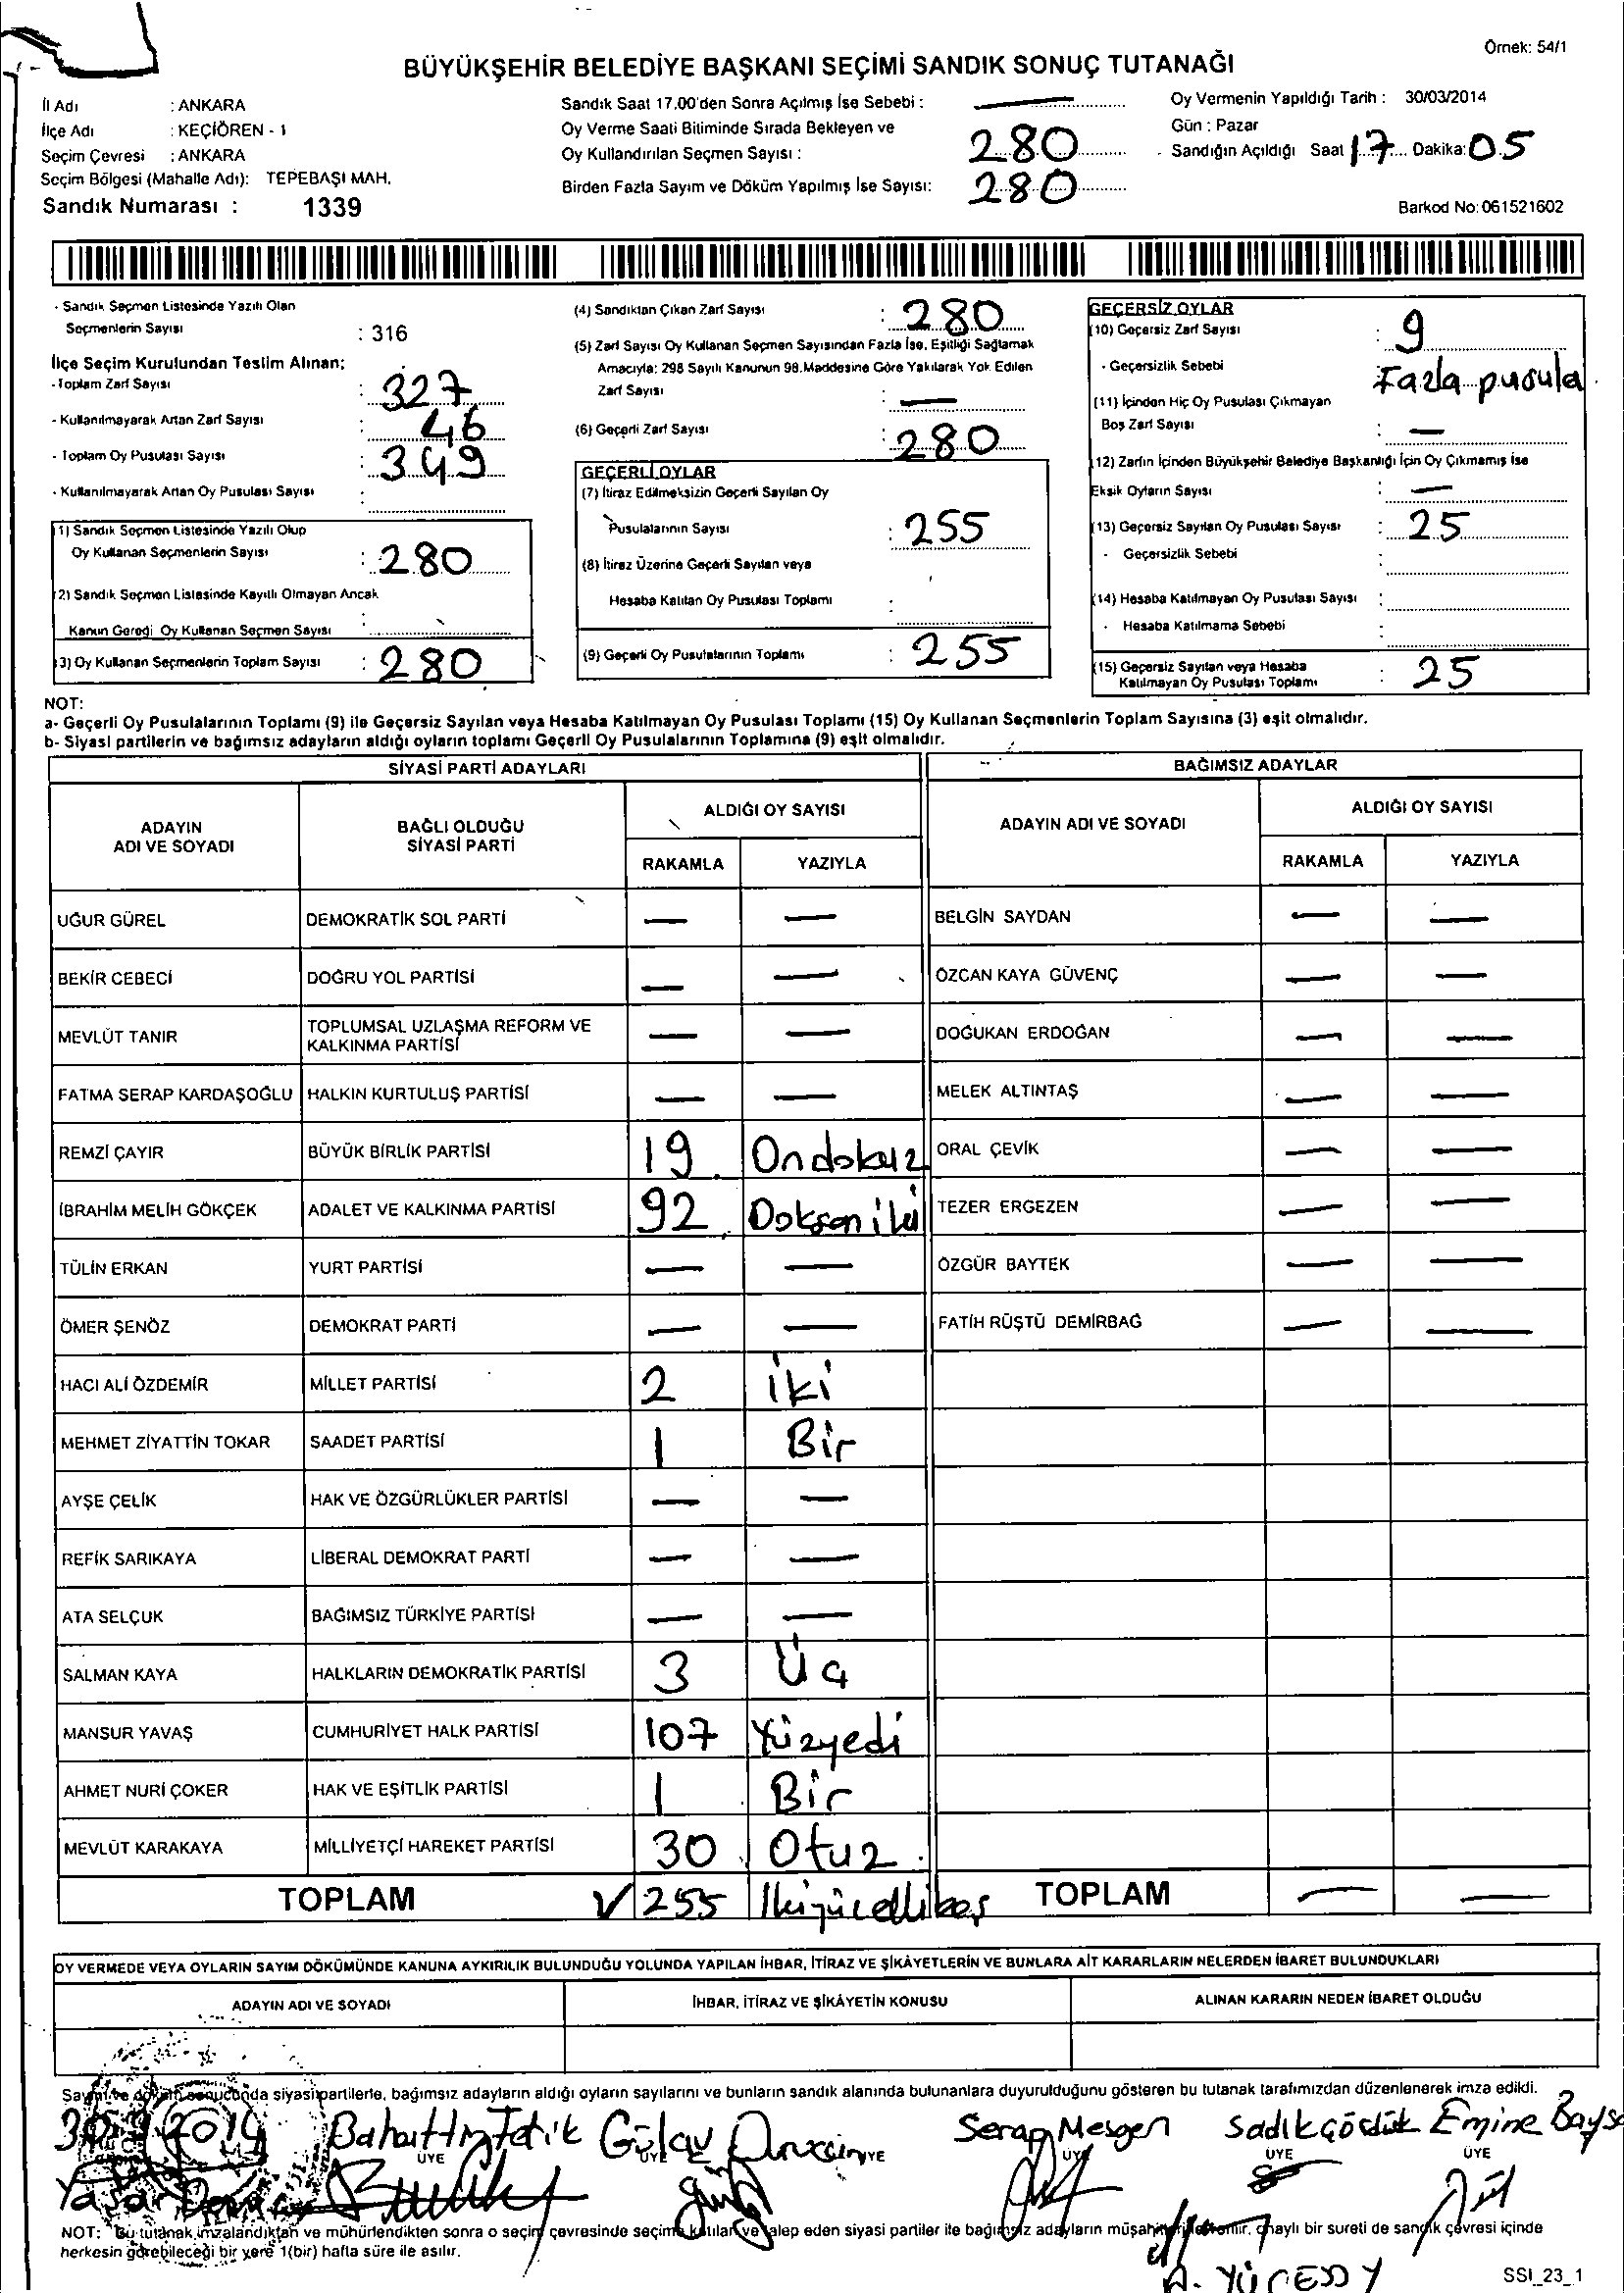 Örnek: 54/1
BÜYÜKŞEHİR BELEDİYE BAŞKANI SEÇİMİ SANDIK SONUÇ TUTANAĞI
İl Adı : ANKARA
İlçe Adı : KEÇİÖREN - 1
Seçim Çevresi : ANKARA
Seçim Bölgesi (Mahalle Adı): TEPEBAŞI MAH.
Sandık Numarası : 1339
Sandık Saat 17.00'den Sonra Açılmış İse Sebebi : —
Oy Verme Saati Bitiminde Sırada Bekleyen ve
Oy Kullandırılan Seçmen Sayısı : 280
Birden Fazla Sayım ve Döküm Yapılmış İse Sayısı: 280
Oy Vermenin Yapıldığı Tarih : 30/03/2014
Gün : Pazar
Sandığın Açıldığı Saat 17 Dakika: 05
Barkod No: 061521602
- Sandık Seçmen Listesinde Yazılı Olan
Seçmenlerin Sayısı : 316
İlçe Seçim Kurulundan Teslim Alınan:
- Toplam Zarf Sayısı : 327
- Kullanılmayarak Artan Zarf Sayısı : 46
- Toplam Oy Pusulası Sayısı : 349
- Kullanılmayarak Artan Oy Pusulası Sayısı :
(1) Sandık Seçmen Listesinde Yazılı Olup
Oy Kullanan Seçmenlerin Sayısı : 280
(2) Sandık Seçmen Listesinde Kayıtlı Olmayan Ancak
Kanun Gereği Oy Kullanan Seçmen Sayısı :
(3) Oy Kullanan Seçmenlerin Toplam Sayısı : 280
(4) Sandıktan Çıkan Zarf Sayısı : 280
(5) Zarf Sayısı Oy Kullanan Seçmen Sayısından Fazla İse, Eşitliği Sağlamak
Amacıyla; 298 Sayılı Kanunun 98.Maddesine Göre Yakılarak Yok Edilen
Zarf Sayısı : —
(6) Geçerli Zarf Sayısı : 280
GEÇERLİ OYLAR
(7) İtiraz Edilmeksizin Geçerli Sayılan Oy
Pusulalarının Sayısı : 255
(8) İtiraz Üzerine Geçerli Sayılan veya
Hesaba Katılan Oy Pusulası Toplamı :
(9) Geçerli Oy Pusulalarının Toplamı : 255
GEÇERSİZ OYLAR
(10) Geçersiz Zarf Sayısı : 9
- Geçersizlik Sebebi : Fazla pusula
(11) İçinden Hiç Oy Pusulası Çıkmayan
Boş Zarf Sayısı : —
(12) Zarfın İçinden Büyükşehir Belediye Başkanlığı İçin Oy Çıkmamış İse
Eksik Oyların Sayısı : —
(13) Geçersiz Sayılan Oy Pusulası Sayısı : 25
- Geçersizlik Sebebi :
(14) Hesaba Katılmayan Oy Pusulası Sayısı :
- Hesaba Katılmama Sebebi :
(15) Geçersiz Sayılan veya Hesaba
Katılmayan Oy Pusulası Toplamı : 25
NOT:
a- Geçerli Oy Pusulalarının Toplamı (9) ile Geçersiz Sayılan veya Hesaba Katılmayan Oy Pusulası Toplamı (15) Oy Kullanan Seçmenlerin Toplam Sayısına (3) eşit olmalıdır.
b- Siyasi partilerin ve bağımsız adayların aldığı oyların toplamı Geçerli Oy Pusulalarının Toplamına (9) eşit olmalıdır.
SİYASİ PARTİ ADAYLARI BAĞIMSIZ ADAYLAR
ADAYIN ADI VE SOYADI BAĞLI OLDUĞU SİYASİ PARTİ ALDIĞI OY SAYISI ADAYIN ADI VE SOYADI ALDIĞI OY SAYISI
RAKAMLA YAZIYLA RAKAMLA YAZIYLA
UĞUR GÜREL DEMOKRATİK SOL PARTİ — — BELGİN SAYDAN — —
BEKİR CEBECİ DOĞRU YOL PARTİSİ — — ÖZCAN KAYA GÜVENÇ — —
MEVLÜT TANIR TOPLUMSAL UZLAŞMA REFORM VE KALKINMA PARTİSİ — — DOĞUKAN ERDOĞAN — —
FATMA SERAP KARDAŞOĞLU HALKIN KURTULUŞ PARTİSİ — — MELEK ALTINTAŞ — —
REMZİ ÇAYIR BÜYÜK BİRLİK PARTİSİ 19 Ondokuz ORAL ÇEVİK — —
İBRAHİM MELİH GÖKÇEK ADALET VE KALKINMA PARTİSİ 92 Doksan iki TEZER ERGEZEN — —
TÜLİN ERKAN YURT PARTİSİ — — ÖZGÜR BAYTEK — —
ÖMER ŞENÖZ DEMOKRAT PARTİ — — FATİH RÜŞTÜ DEMİRBAĞ — —
HACI ALİ ÖZDEMİR MİLLET PARTİSİ 2 İki
MEHMET ZİYATTİN TOKAR SAADET PARTİSİ 1 Bir
AYŞE ÇELİK HAK VE ÖZGÜRLÜKLER PARTİSİ — —
REFİK SARIKAYA LİBERAL DEMOKRAT PARTİ — —
ATA SELÇUK BAĞIMSIZ TÜRKİYE PARTİSİ — —
SALMAN KAYA HALKLARIN DEMOKRATİK PARTİSİ 3 Üç
MANSUR YAVAŞ CUMHURİYET HALK PARTİSİ 107 Yüzyedi
AHMET NURİ ÇOKER HAK VE EŞİTLİK PARTİSİ 1 Bir
MEVLÜT KARAKAYA MİLLİYETÇİ HAREKET PARTİSİ 30 Otuz
TOPLAM 255 İkiyüzellibeş TOPLAM — —
OY VERMEDE VEYA OYLARIN SAYIM DÖKÜMÜNDE KANUNA AYKIRILIK BULUNDUĞU YOLUNDA YAPILAN İHBAR, İTİRAZ VE ŞİKÂYETLERİN VE BUNLARA AİT KARARLARIN NELERDEN İBARET BULUNDUKLARI
ADAYIN ADI VE SOYADI İHBAR, İTİRAZ VE ŞİKÂYETİN KONUSU ALINAN KARARIN NEDEN İBARET OLDUĞU
Sayım ve döküm sonucunda siyasi partilerle, bağımsız adayların aldığı oyların sayılarını ve bunların sandık alanında bulunanlara duyurulduğunu gösteren bu tutanak tarafımızdan düzenlenerek imza edildi.
2014 Gülay Serap Sadık Emine
ÜYE ÜYE ÜYE ÜYE ÜYE ÜYE
Yaşar
NOT: Bu tutanak imzalandıktan ve mühürlendikten sonra o seçim çevresinde seçime katılan ve talep eden siyasi partiler ile bağımsız adayların onaylı bir sureti de sandık çevresi içinde
herkesin görebileceği bir yere 1(bir) hafta süre ile asılır.
SSI_23_1